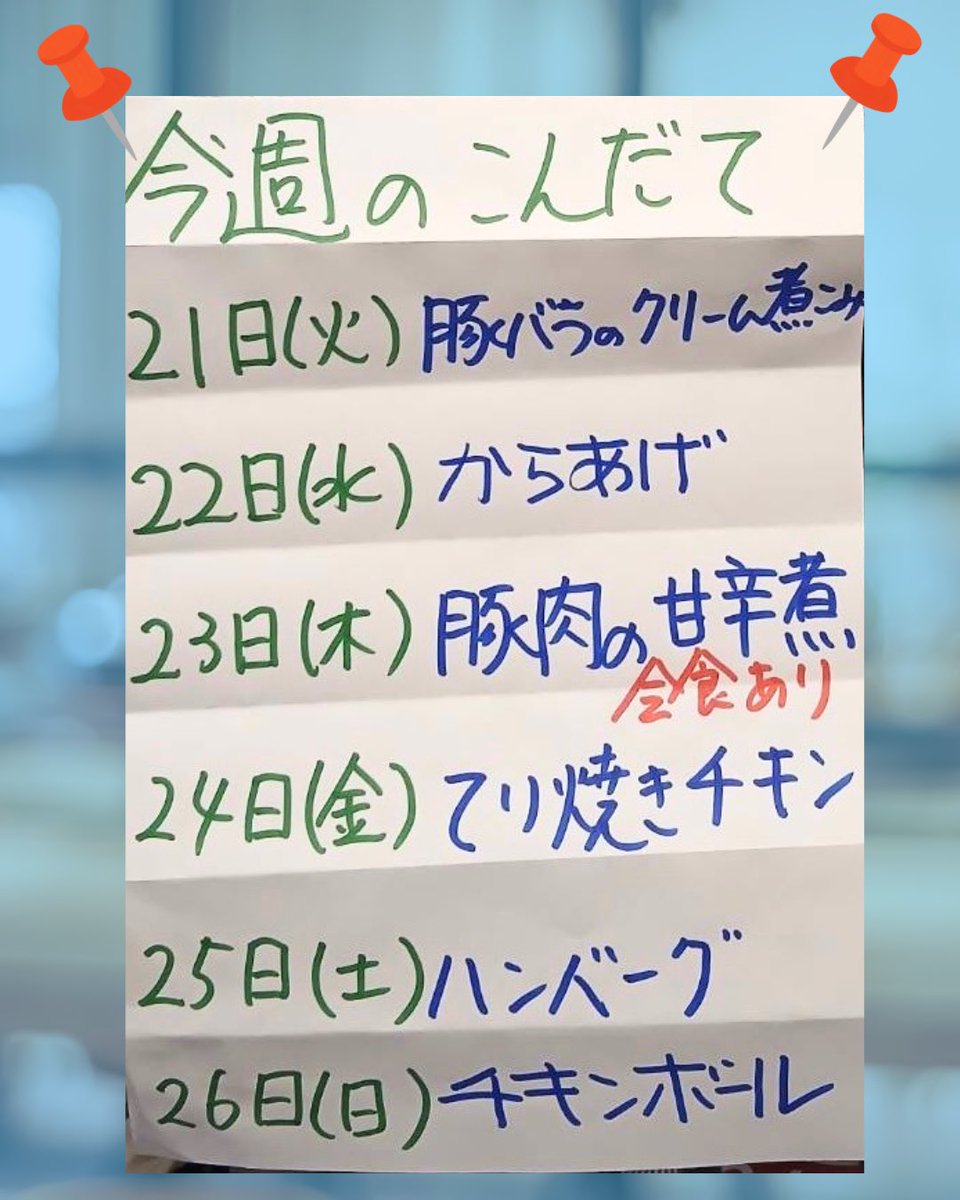 今週のこんだて
21日(火) 豚バラのクリーム煮こみ
22日(水) からあげ
23日(木) 豚肉の甘辛煮
会食あり
24日(金) てり焼きチキン
25日(土) ハンバーグ
26日(日) チキンボール